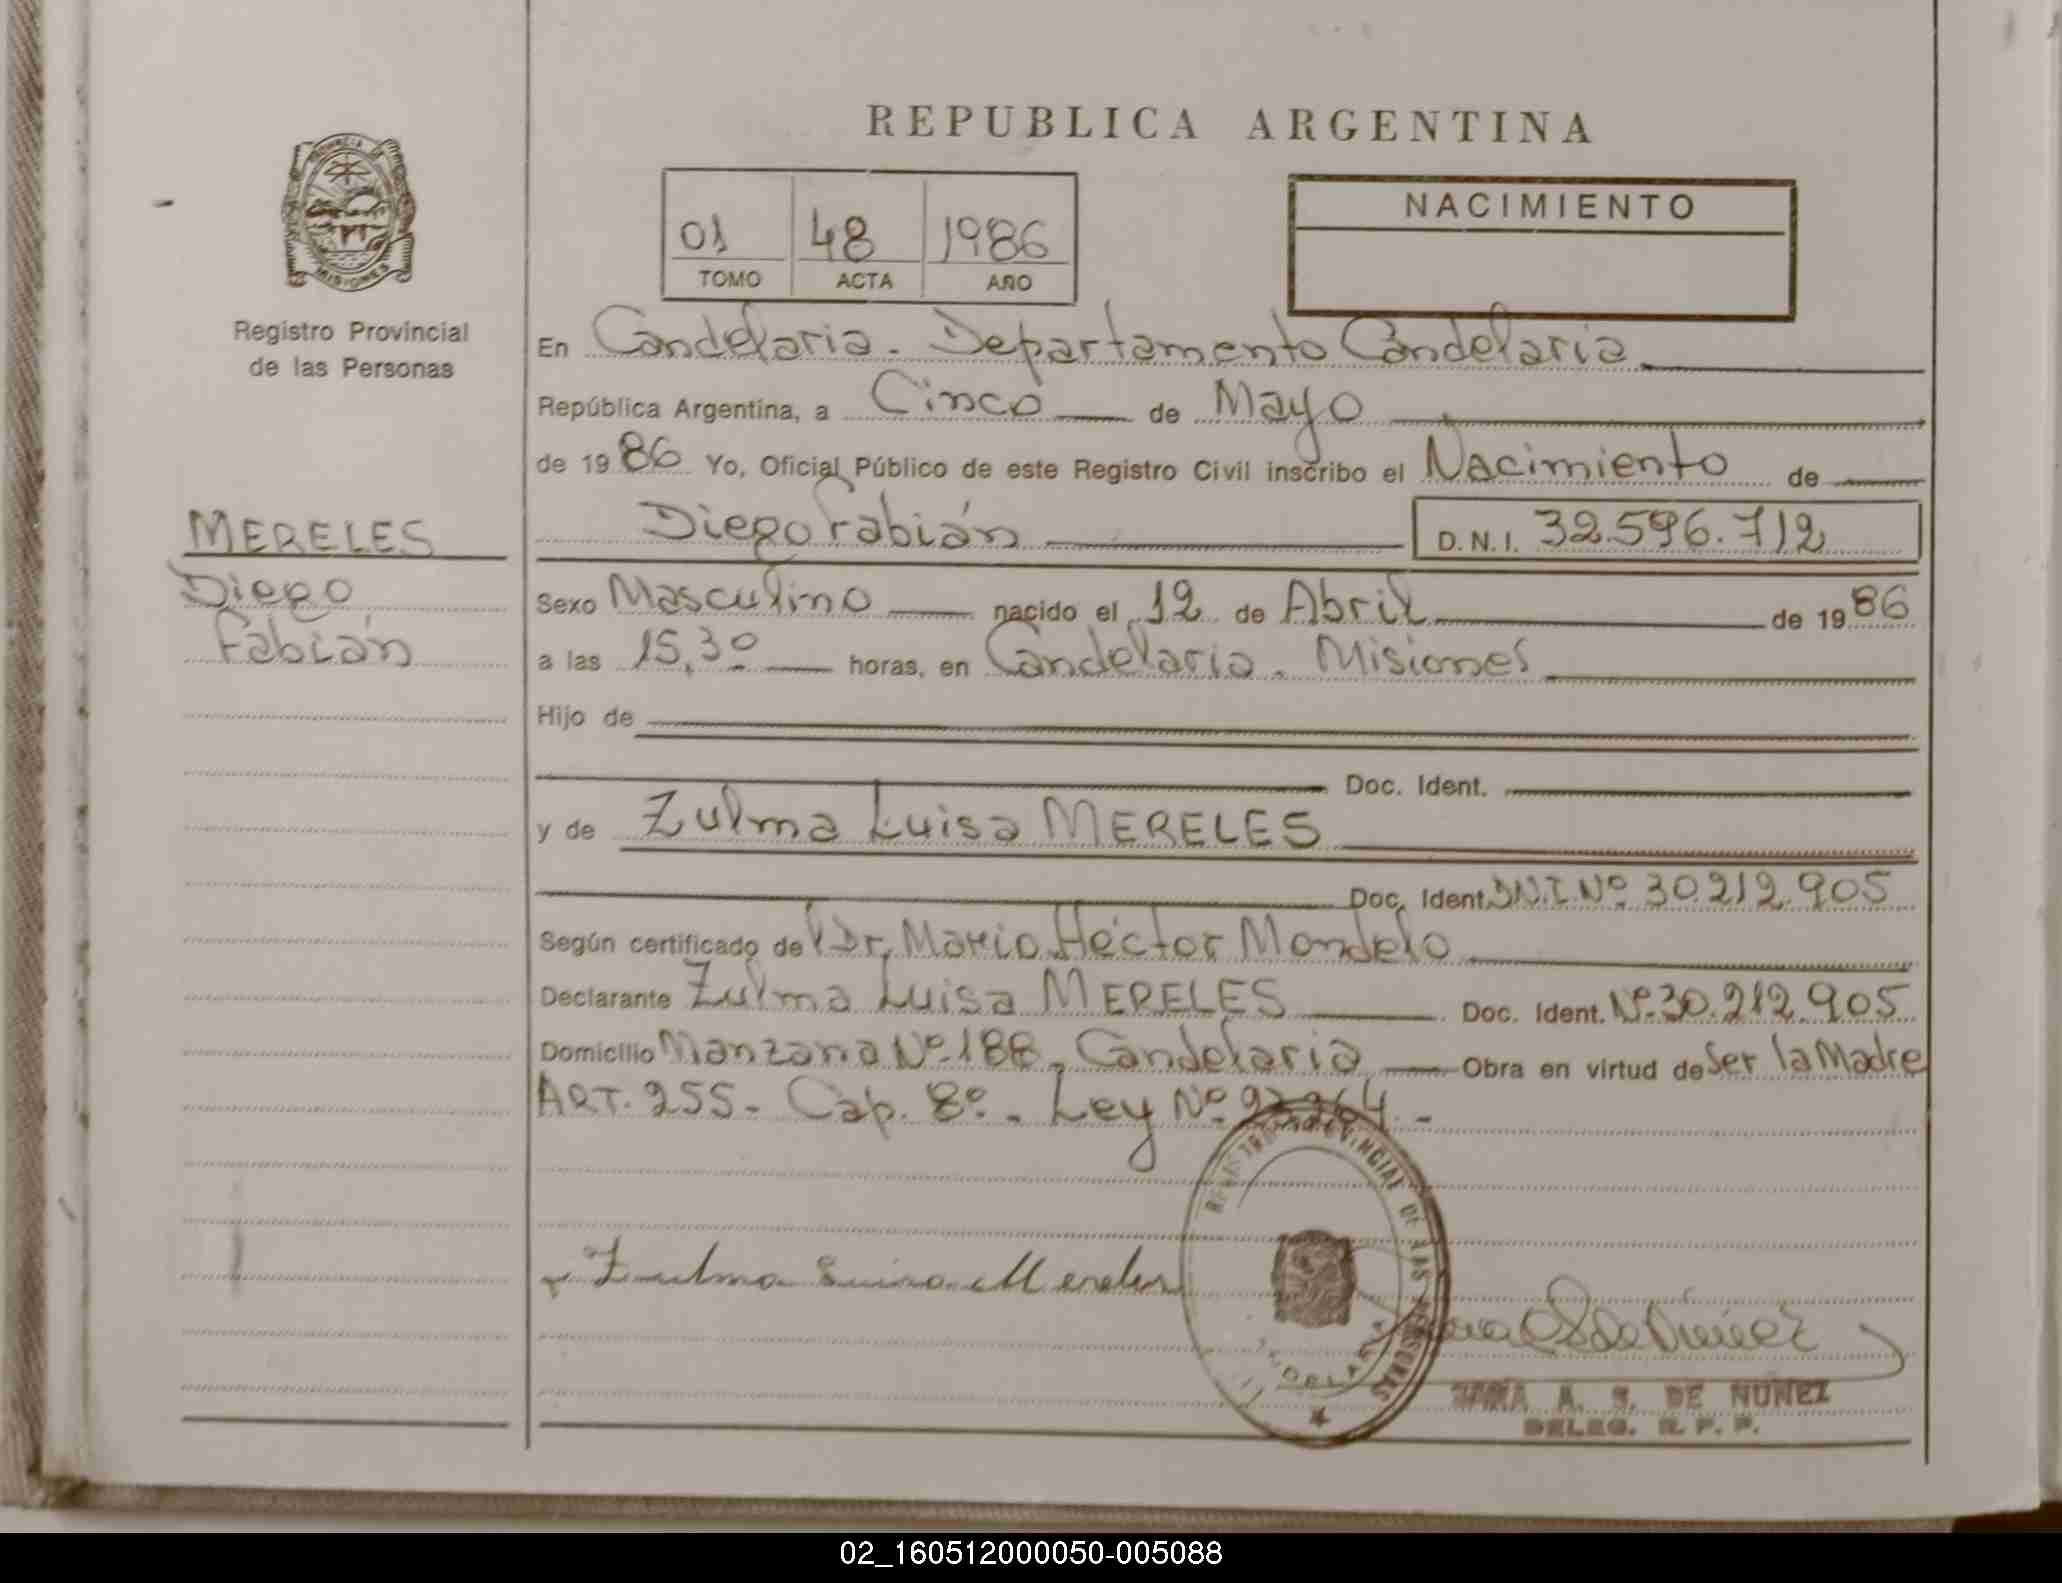 REPUBLICA ARGENTINA
PROVINCIA DE
MISIONES
Registro Provincial
de las Personas
01 48 1986
TOMO ACTA AÑO
NACIMIENTO
En Candelaria. Departamento Candelaria
República Argentina, a Cinco de Mayo
de 1986 Yo, Oficial Público de este Registro Civil inscribo el Nacimiento de
MERELES
Diego Fabián D.N.I. 32.596.712
Diego
Fabián
Sexo Masculino nacido el 12 de Abril de 1986
a las 15,30 horas, en Candelaria. Misiones
Hijo de
Doc. Ident.
y de Zulma Luisa MERELES
Doc. Ident. D.N.I. Nº 30.212.905
Según certificado del Dr. Mario Héctor Mondelo
Declarante Zulma Luisa MERELES Doc. Ident. Nº 30.212.905
Domicilio Manzana Nº 188. Candelaria Obra en virtud de Ser la Madre
ART. 255 - Cap. 8º. Ley Nº 23264. -
REGISTRO PROVINCIAL DE LAS PERSONAS
Zulma Luisa Mereles
SARA A. S. DE NUÑEZ
DELEG. R. P. P.
02_160512000050-005088